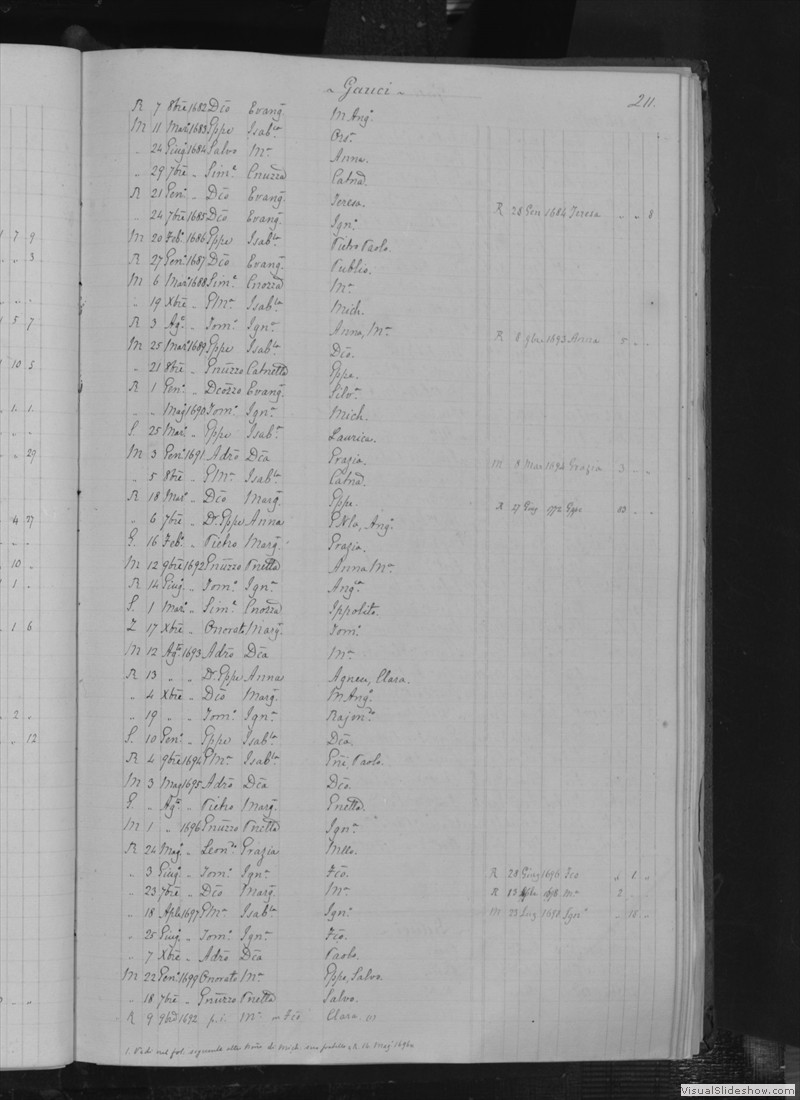 ~ Gauci ~
211.
R 7 8bre 1682 Dco Evang. M Ang.
M 11 Mar. 1683 Eppe Isab.la Ors.
„ 24 Giug. 1684 Salvo M.a Anna.
„ 29 7bre „ Sim.e Cnuzza Catnd.
R 21 Gen. „ Dco Evang. Teresa. R 28 Gen 1684 Teresa „ „ 8
„ 24 7bre 1685 Dco Evang. Ign.
M 20 Feb. 1686 Eppe Isab.la Pietro Paolo.
R 27 Gen. 1687 Dco Evang. Publio.
M 6 Mar. 1688 Sim.e Cnozza M.a
„ 19 Xbre „ GM.a Isab.la Mich.
R 3 Ag. „ Tom. Ign.a Anna, M.a R 8 9bre 1693 Anna 5 „ „
M 25 Mar. 1689 Eppe Isab.la Dco.
„ 21 8bre „ Gnuzzo Catnetta Eppa.
R 1 Gen. „ Dcozzo Evang. Silv.
„ „ Mag. 1690 Tom. Ign.a Mich.
S. 25 Mar. „ Eppe Isab.a Laurica.
M 3 Gen. 1691 Adrō Dca Grazia. M 8 Mar 1694 Grazia 3 „ „
„ 5 8bre „ GM.a Isab.la Catnd.
R 18 Mar. „ Dco Marg. Eppe. R 27 Giug. 1772 Eppe 83 „ „
„ 6 7bre „ Dr. Eppe Anna GNla, Ang.
G. 16 Feb. „ Pietro Marg. Grazia.
M 12 9bre 1692 Gnuzzo Pnetta Anna M.a
R 14 Giug. „ Tom. Ign.a Ang.a
S. 1 Mar. „ Sim.e Cnozza Ippolito.
Z 17 Xbre „ Onorato Marg. Tom.
M 12 Ag. 1693 Adrō Dca M.a
R 13 „ „ Dr. Eppe Anna Agnes, Clara.
„ 4 Xbre „ Dco Marg. M Ang.
„ 19 „ „ Tom. Ign.a Rajon.
S. 10 Gen. „ Eppe Isab.la Dca.
R 4 9bre 1694 GM.a Isab.la Gni Paolo.
M 3 Mag 1695 Adrō Dca Dco.
G. „ Ag. „ Pietro Marg. Gnetta.
M 1 „ 1696 Gnuzzo Pnetta Ign.
R 24 Mag. „ Leon. Grazia Mllo.
„ 3 Giug. „ Tom. Ign.a Fco. R 28 Giug 1696 Fco „ 1 „
„ 23 7bre „ Dco Marg. M.a R 13 1698 M.a 2 „ „
„ 18 Aple 1697 GM.a Isab.la Ign. M 23 Lug 1698 Ign. „ 15 „
„ 25 Giug. „ Tom. Ign.a Fco.
„ 7 Xbre „ Adrō Dca Paolo.
M 22 Gen. 1699 Onorato M.a Eppe, Salvo.
„ 18 7bre „ Gnuzzo Pnetta Salvo.
R 9 9bre 1692 p. i. M.a Fco, Clara. (1)
1. Vedi nel fol. seguente R 14 Mag. 1696
VisualSlideshow.com